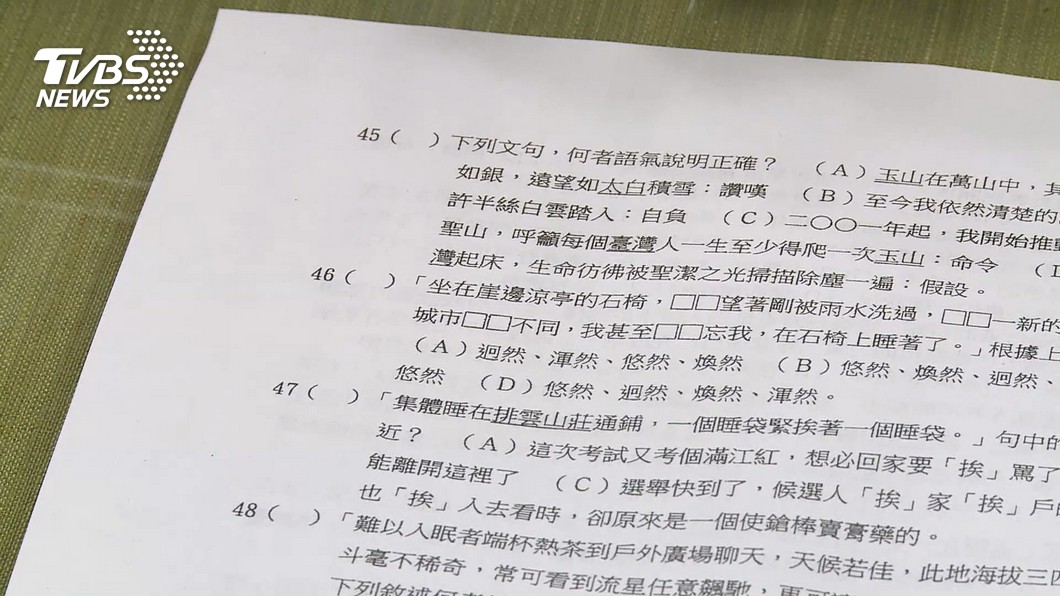 TVBS
NEWS
45（　）下列文句，何者語氣說明正確？　（A）玉山在萬山中，其
如銀，遠望如太白積雪：讚嘆　（B）至今我依然清楚的
許半絲白雲踏入：自負　（C）二〇〇一年起，我開始推動
聖山，呼籲每個臺灣人一生至少得爬一次玉山：命令
灣起床，生命彷彿被聖潔之光掃描除塵一遍：假設。
46（　）「坐在崖邊涼亭的石椅，□□望著剛被雨水洗過，□□一新的
城市□□不同，我甚至□□忘我，在石椅上睡著了。」根據上
（A）迥然、渾然、悠然、煥然　（B）悠然、煥然、迥然、
悠然　（D）悠然、迥然、煥然、渾然。
47（　）「集體睡在排雲山莊通鋪，一個睡袋緊挨著一個睡袋。」句中的
近？　（A）這次考試又考個滿江紅，想必回家要「挨」罵了
能離開這裡了　（C）選舉快到了，候選人「挨」家「挨」戶的
也「挨」入去看時，卻原來是一個使鎗棒賣膏藥的。
48（　）「難以入眠者端杯熱茶到戶外廣場聊天，天候若佳，此地海拔三四
斗毫不稀奇，常可看到流星任意飆馳，更可
下列敘述何者